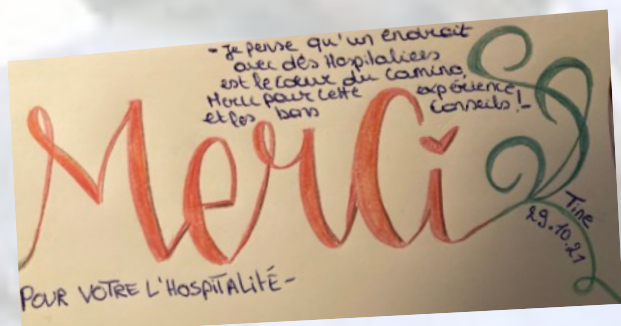 - Je pense qu'un endroit
avec des Hospitaliers
est le coeur du Camino,
Merci pour cette expérience
et les bons conseils! -
Merci
POUR VOTRE L'HOSPITALITÉ -
Tine
29.10.21